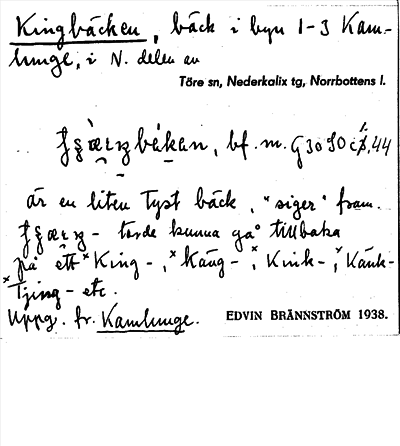 Kingbäcken, bäck i byn 1-3 Kam-
lunge, i N. delen av
Töre sn, Nederkalix tg, Norrbottens l.
bf. m.
är en liten tyst bäck, "siger" fram.
- torde kunna gå tillbaka
på ett *King-, *Käng-, *Kvik-, *Känk-
*Tjing- etc.
Uppg. fr. Kamlunge. EDVIN BRÄNNSTRÖM 1938.